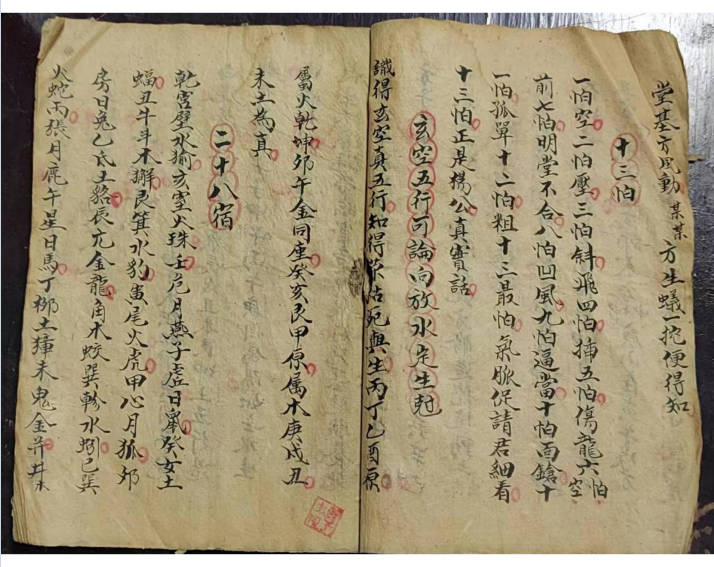 堂基方風動某某方生蟻一挖便得知
十三怕
一怕空二怕壓三怕斜飛四怕揷五怕傷龍六怕空
前七怕明堂不合八怕凹風九怕逼當十怕面鎗十
一怕孤單十二怕粗十三最怕氣脈促請君細看
十三怕正是楊公真實話
玄空五行可論向放水定生尅
識得玄空真五行知得榮枯死與生丙丁乙酉原
屬火乾坤卯午金同座癸亥艮甲原属木庚戌丑
未土為真
二十八宿
乾壁水㺄亥室火猪壬危月燕子虛日鼠癸女土
蝠丑牛斗木獬艮箕水豹寅尾火虎甲心月狐卯
房日兔乙氐土貉辰亢金龍角木蛟巽軫水蚓巳巽
火蛇丙張月鹿午星日馬丁柳土獐未鬼金羊井木